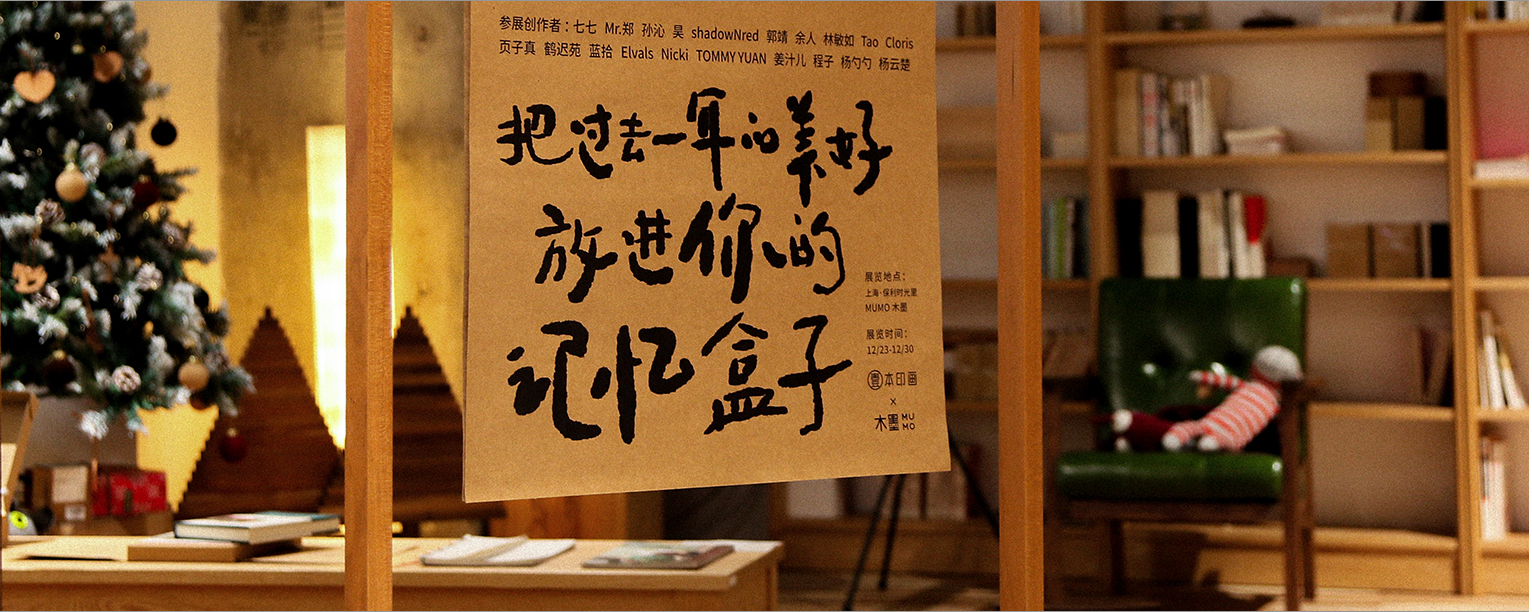 参展创作者：七七 Mr.郑 孙沁 昊 shadowNred 郭靖 余人 林敏如 Tao Cloris
页子真 鹤迟苑 蓝拾 Elvals Nicki TOMMY YUAN 姜汁儿 程子 杨勺勺 杨云楚
把过去一年的美好
放进你的
记忆盒子
展览地点：
上海·保利时光里
MUMO 木墨
展览时间：
12/23-12/30
壹本印画
×
木墨 MUMO